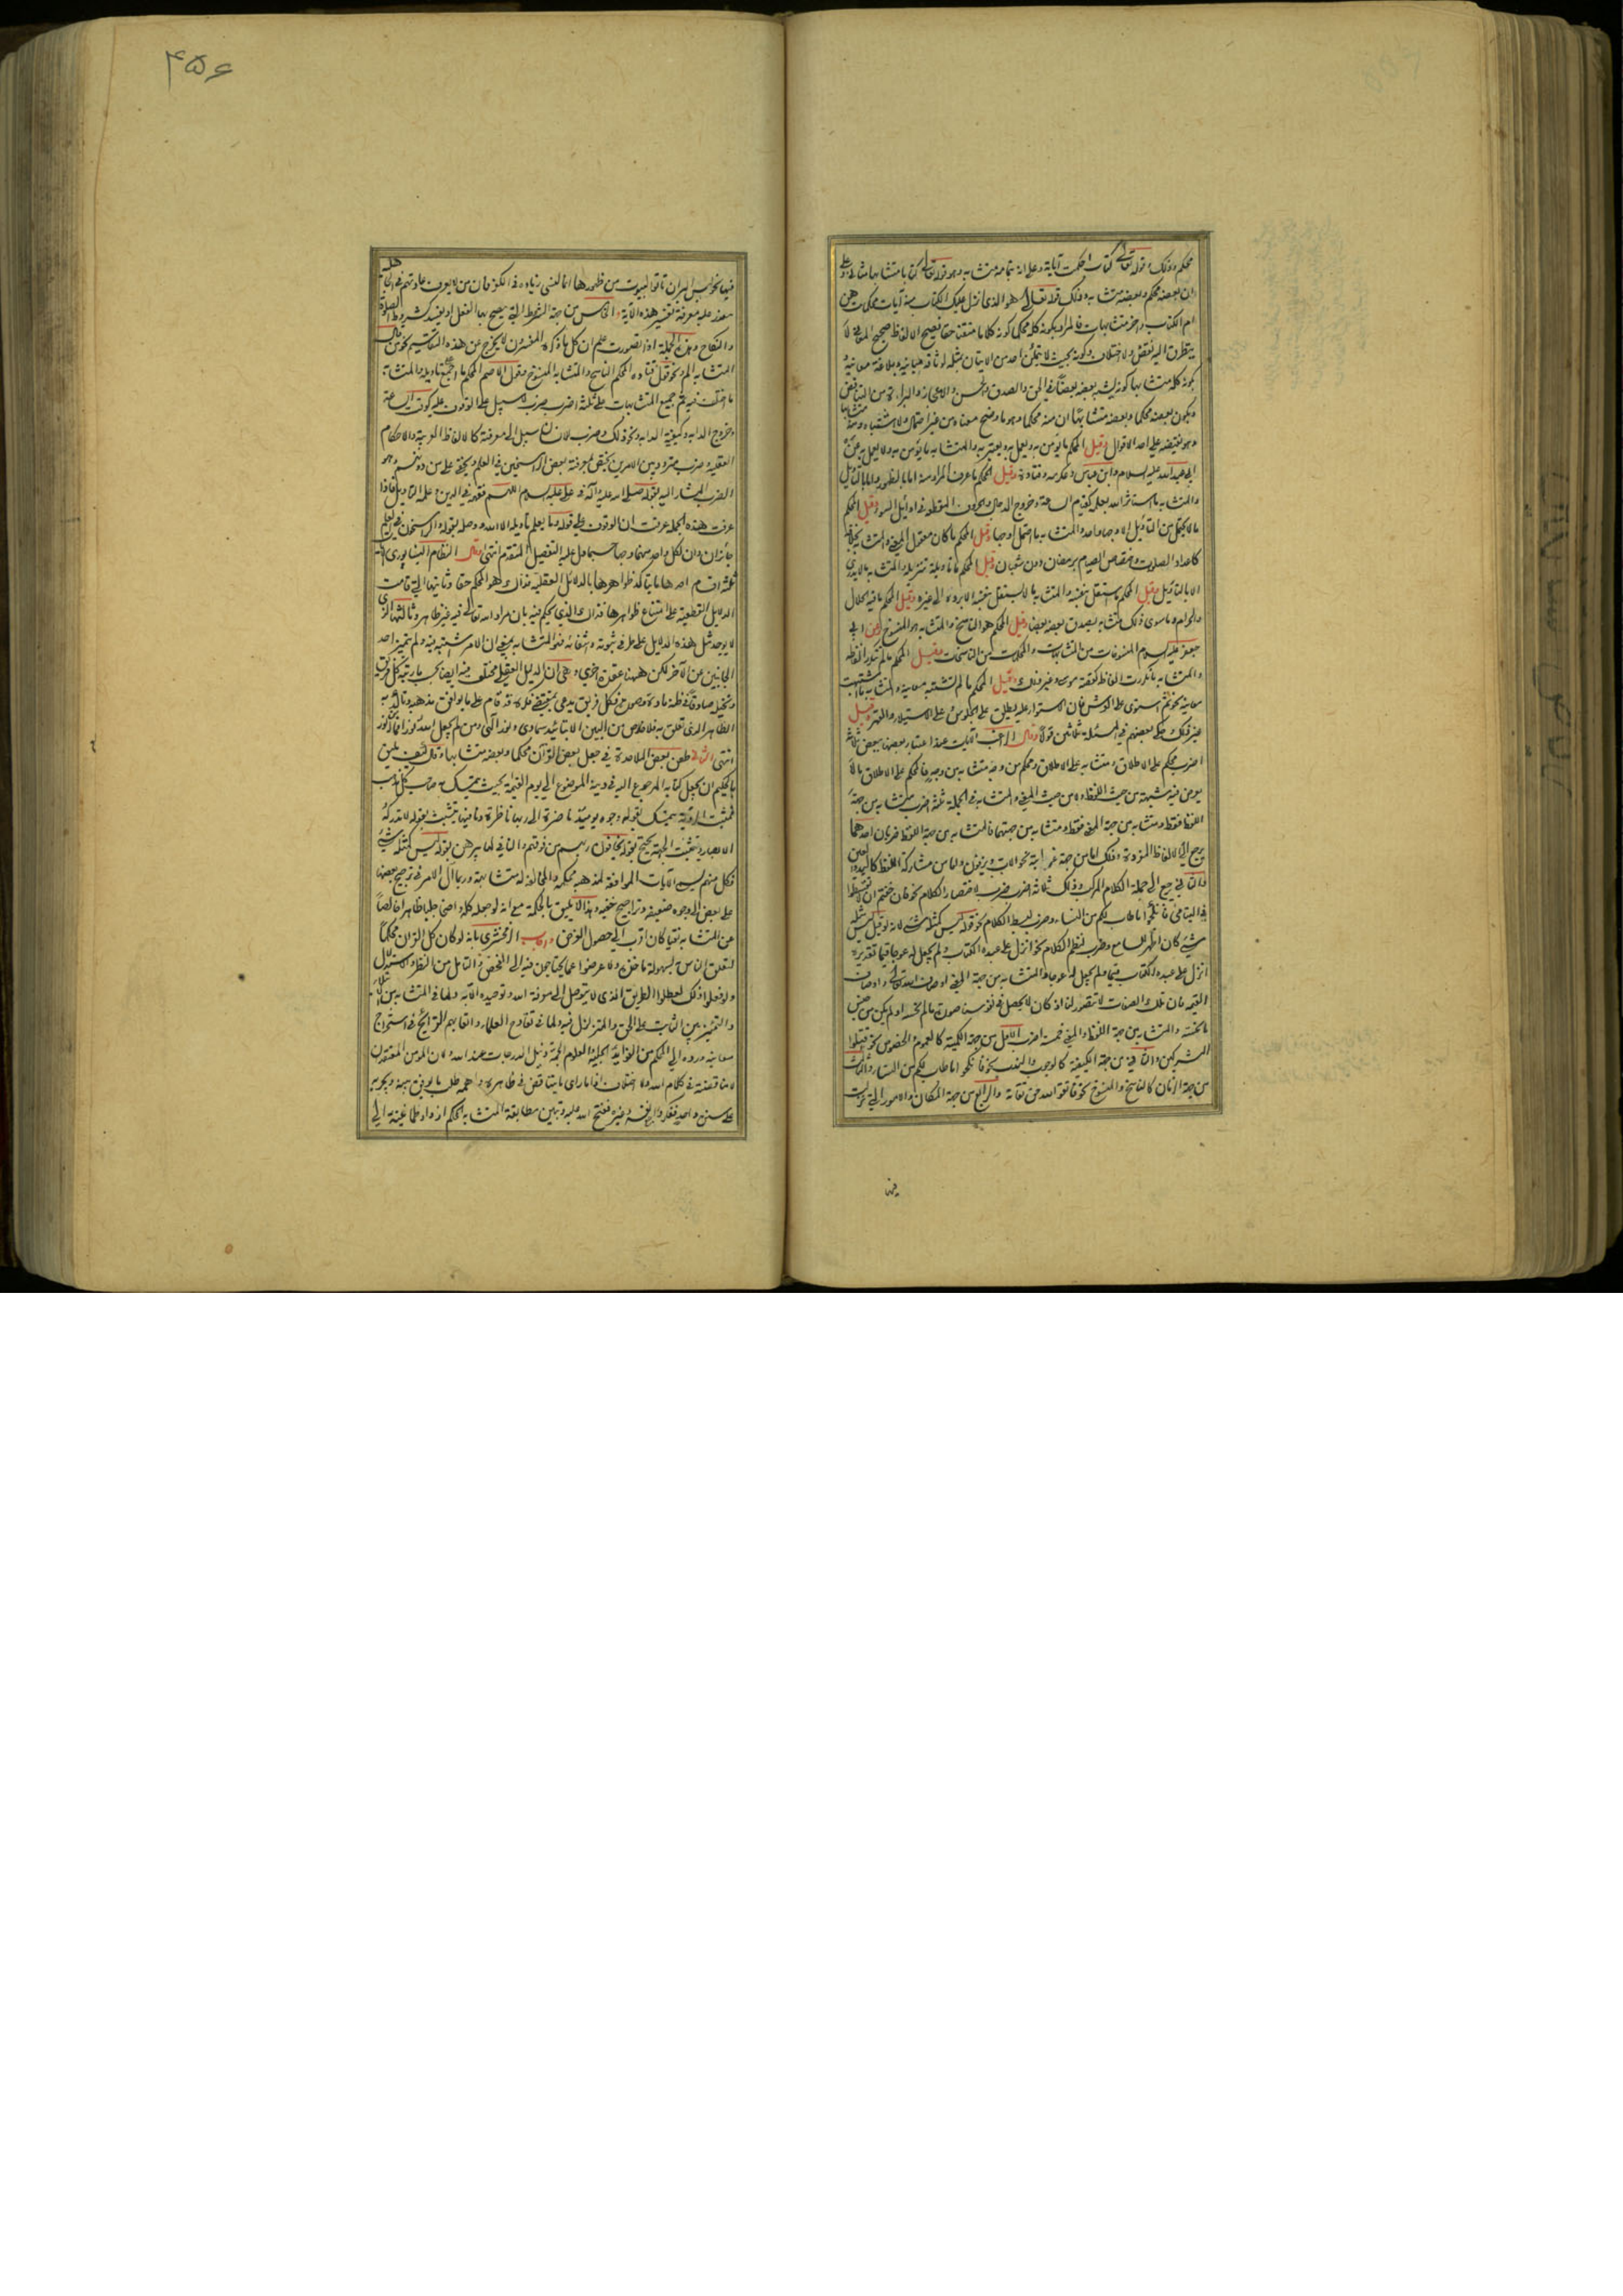 محكم وذلك قوله تعالى كتاب احكمت آياته وعلى انه بتمامه متشابه وهو قوله تعالى كتابا متشابها مثاني وعلى
ان بعضه محكم وبعضه متشابه وذلك قوله تعالى هو الذى انزل عليك الكتاب منه آيات محكمات هن
ام الكتاب واخر متشابهات فالمراد بكونه كله محكما كونه كلاما متقنا حقا فصيح الالفاظ صحيح المعانى لا
يتطرق اليه نقص ولا اختلاف وكونه بحيث لا يتمكن احد من الاتيان بمثله لوثاقة مبانيه وبلاغة معانيه
بكونه كله متشابها كونه يشبه بعضه بعضا فى الحق والصدق والحسن والاعجاز والبراءة من التناقض
وبكون بعضه محكما وبعضه متشابها ان منه محكما وهو ما وضح معناه من غير احتمال ولا اشتباه ومنه متشابها
وهو نقيضه على احد الاقوال وقيل المحكم ما يؤمن به ويعمل به ويعتبر به والمتشابه ما يؤمن به ولا يعمل به عن
ابى عبد الله عليه السلام وابن عباس وعكرمه وقتادة وقيل المحكم ما عرف المراد منه اما بالظهور واما بالتاويل
والمتشابه ما استاثر الله بعلمه كقيام الساعة وخروج الدجال والحروف المقطعة فى اوائل السور وقيل المحكم
ما لا يحتمل من التأويل الا وجها واحدا والمتشابه ما احتمل اوجها وقيل المحكم ما كان معقول المعنى والمتشابه بخلافه
كاعداد الصلوات واختصاص الصيام برمضان دون شعبان وقيل المحكم ما تاويله تنزيله والمتشابه ما لا يدرى
الا بالتاويل وقيل المحكم ما استقل بنفسه والمتشابه ما لا يستقل بنفسه الا برده الى غيره وقيل المحكم ما فيه الحلال
والحرام وما سوى ذلك متشابه يصدق بعضه بعضا وقيل المحكم هو الناسخ والمتشابه هو المنسوخ وعن ابى
جعفر عليه السلام المنسوخات من المتشابهات والمحكمات من الناسخات وقيل المحكم ما لم يتكرر الفاظه
والمتشابه ما تكررت الفاظه كقصة موسى وغير ذلك وقيل المحكم ما لم تشتبه معانيه والمتشابه ما اشتبهت
معانيه نحو ثم استوى على العرش فان الاستواء عليه يطلق على الجلوس وعلى الاستيلاء والقهر وقيل
غير ذلك حكى بعضهم فى المسئلة ثلاثين قولا وقال الراغب الآيات عند اعتبار بعضها ببعض ثلاثة
اضرب محكم على الاطلاق ومتشابه على الاطلاق ومحكم من وجه متشابه من وجه فالمحكم على الاطلاق ما لا
يعرض فيه شبهة من حيث اللفظ ولا من حيث المعنى والمتشابه فى الجملة ثلثة اضرب متشابه من جهة
اللفظ فقط ومتشابه من جهة المعنى فقط ومتشابه من جهتهما فالمتشابه من جهة اللفظ ضربان احدهما
يرجع الى الالفاظ المفردة وذلك اما من جهة غرابته نحو الاب ويزفون واما من مشاركة اللفظ كاليد والعين
والثانى يرجع الى جملة الكلام المركب وذلك ثلاثة اضرب ضرب لاختصار الكلام نحو فان خفتم ان لا تقسطوا
فى اليتامى فانكحوا ما طاب لكم من النساء وضرب لبسط الكلام نحو قوله ليس كمثله شئ لانه لو قيل ليس مثله
شئ كان اظهر للسامع وضرب لنظم الكلام نحو انزل على عبده الكتاب ولم يجعل له عوجا قيما تقديره
انزل على عبده الكتاب قيما ولم يجعل له عوجا والمتشابه من جهة المعنى اوصاف الله تعالى واوصاف
القيمه فان تلك الصفات لا تتصور لنا اذ كان لا يحصل فى نفوسنا صورة ما لم نحسه او لم يكن من جنس
ما نحسه والمتشابه من جهة اللفظ والمعنى خمسة اضرب الاول من جهة الكمية كالعموم والخصوص نحو اقتلوا
المشركين والثانى من جهة الكيفية كالوجوب والندب نحو فانكحوا ما طاب لكم من النساء والثالث
من جهة الزمان كالناسخ والمنسوخ نحو فاتقوا الله حق تقاته والرابع من جهة المكان والامور التى نزلت
فيها
۴۵۶
فيها نحو ليس البر ان تاتوا البيوت من ظهورها انما النسئ زيادة فى الكفر فان من لا يعرف عادتهم فى الجاهلية
يتعذر عليه معرفة تفسير هذه الآية والخامس من جهة الشروط التى يصح بها الفعل او يفسد كشروط الصلوة
والنكاح وهذه الجملة اذا تصورت علم ان كل ما ذكره المفسرون لا يخرج عن هذه التقاسيم نحو من قال
المتشابه الم ونحو قول قتادة المحكم الناسخ والمتشابه المنسوخ وقول الاصم المحكم ما اجمع على تاويله والمتشابه
ما اختلف فيه ثم جميع المتشابهات على ثلثة اضرب ضرب لا سبيل على الوقوف عليه كوقت الساعة
وخروج الدابه وكيفية الدابه ونحو ذلك وضرب للانسان سبيل الى معرفته كالالفاظ الغريبة والاحكام
الغلقة وضرب متردد بين الامرين يختص بمعرفته بعض الراسخين فى العلم ويخفى على من دونهم وهو
الضرب المشار اليه بقوله صلى الله عليه وآله فى على عليه السلام اللهم فقهه فى الدين وعلمه التاويل فاذا
عرفت هذه الجملة عرفت ان الوقوف على قوله وما يعلم تاويله الا الله ووصله بقوله والراسخون فى العلم
جائزان وان لكل واحد منهما وجها حسبما دل عليه التفصيل المتقدم انتهى وقال النظام النيشابورى الآيات
ثلثة اقسام احدها ما يتاكد ظواهرها بالدلائل العقلية فذاك هو المحكم حقا وثانيها التى قامت
الدلايل القطعية على امتناع ظواهرها فذاك الذى يحكم فيه بان مراد الله تعالى فيه غير ظاهره وثالثها الذى
لا يوجد مثل هذه الدلايل على طرفى ثبوته وانتفائه فهو المتشابه بمعنى ان الامر مشتبه فيه ولم يتميز احد
الجانبين عن الآخر لكن ههنا عقدة اخرى وهى ان الدليل العقلى مختلف فيه ايضا بحسب ما رتبه كل فريق
وتخيله صادقا فى ظنه مادة وصورة فكل فريق يدعى بمقتضى فكره قد قام على ما يوافق مذهبه وتاكد به
الظاهر الذى تعلق به فلا خلاص من البين الا بتائيد سماوى ونور الهى ومن لم يجعل الله له نورا فما له من نور
انتهى الثانى طعن بعض الملاحدة فى جعل بعض القرآن محكما وبعضه متشابها وقال كيف يليق
بالحكيم ان يجعل كتابه المرجوع اليه فى دينه الموضوع الى يوم القيمة بحيث يتمسك به صاحب كل مذهب
فمثبت الرؤية يتمسك بقوله وجوه يومئذ ناضرة الى ربها ناظرة ونافيها يتشبث بقوله لا تدركه
الابصار ومثبت الجهة يحتج بقوله يخافون ربهم من فوقهم والنافى لها يبرهن بقوله ليس كمثله شئ
فكل منهم يسمى الآيات الموافقة لمذهبه محكمة والمخالفة له متشابهة وربما آل الامر فى ترجيح بعضها
على بعض الى وجوه ضعيفة وتراجيح خفيه وهذا لا يليق بالحكمة مع انه لو جعله كله واضحا جليا ظاهرا خالصا
عن المتشابه نقيا كان اقرب الى حصول الغرض واجاب الزمخشرى بانه لو كان كل القرآن محكما
لتعلق الناس به لسهولة ماخذه ولاعرضوا عما يحتاجون فيه الى الفحص والتامل من النظر والاستدلال
ولو فعلوا ذلك لعطلوا الطريق الذى لا يتوصل الى معرفة الله وتوحيده الا به ولما فى المتشابه من الابتلاء
والتمييز بين الثابت على الحق والمتزلزل فيه ولما فى تقادح العلماء واتعابهم القرايح فى استخراج
معانيه ورده الى المحكم من الفوايد الجليلة والعلوم الجمة ونيل الدرجات عند الله ولان المؤمن المعتقد ان
لا مناقضة فى كلام الله ولا اختلاف اذا راى ما يتناقض فى ظاهره واهمه طلب ما يوفق بينه ويجريه
على سنن واحد ففكر وراجع نفسه وغيره ففتح الله عليه وتبين مطابقة المتشابه المحكم ازداد طمانينة الى